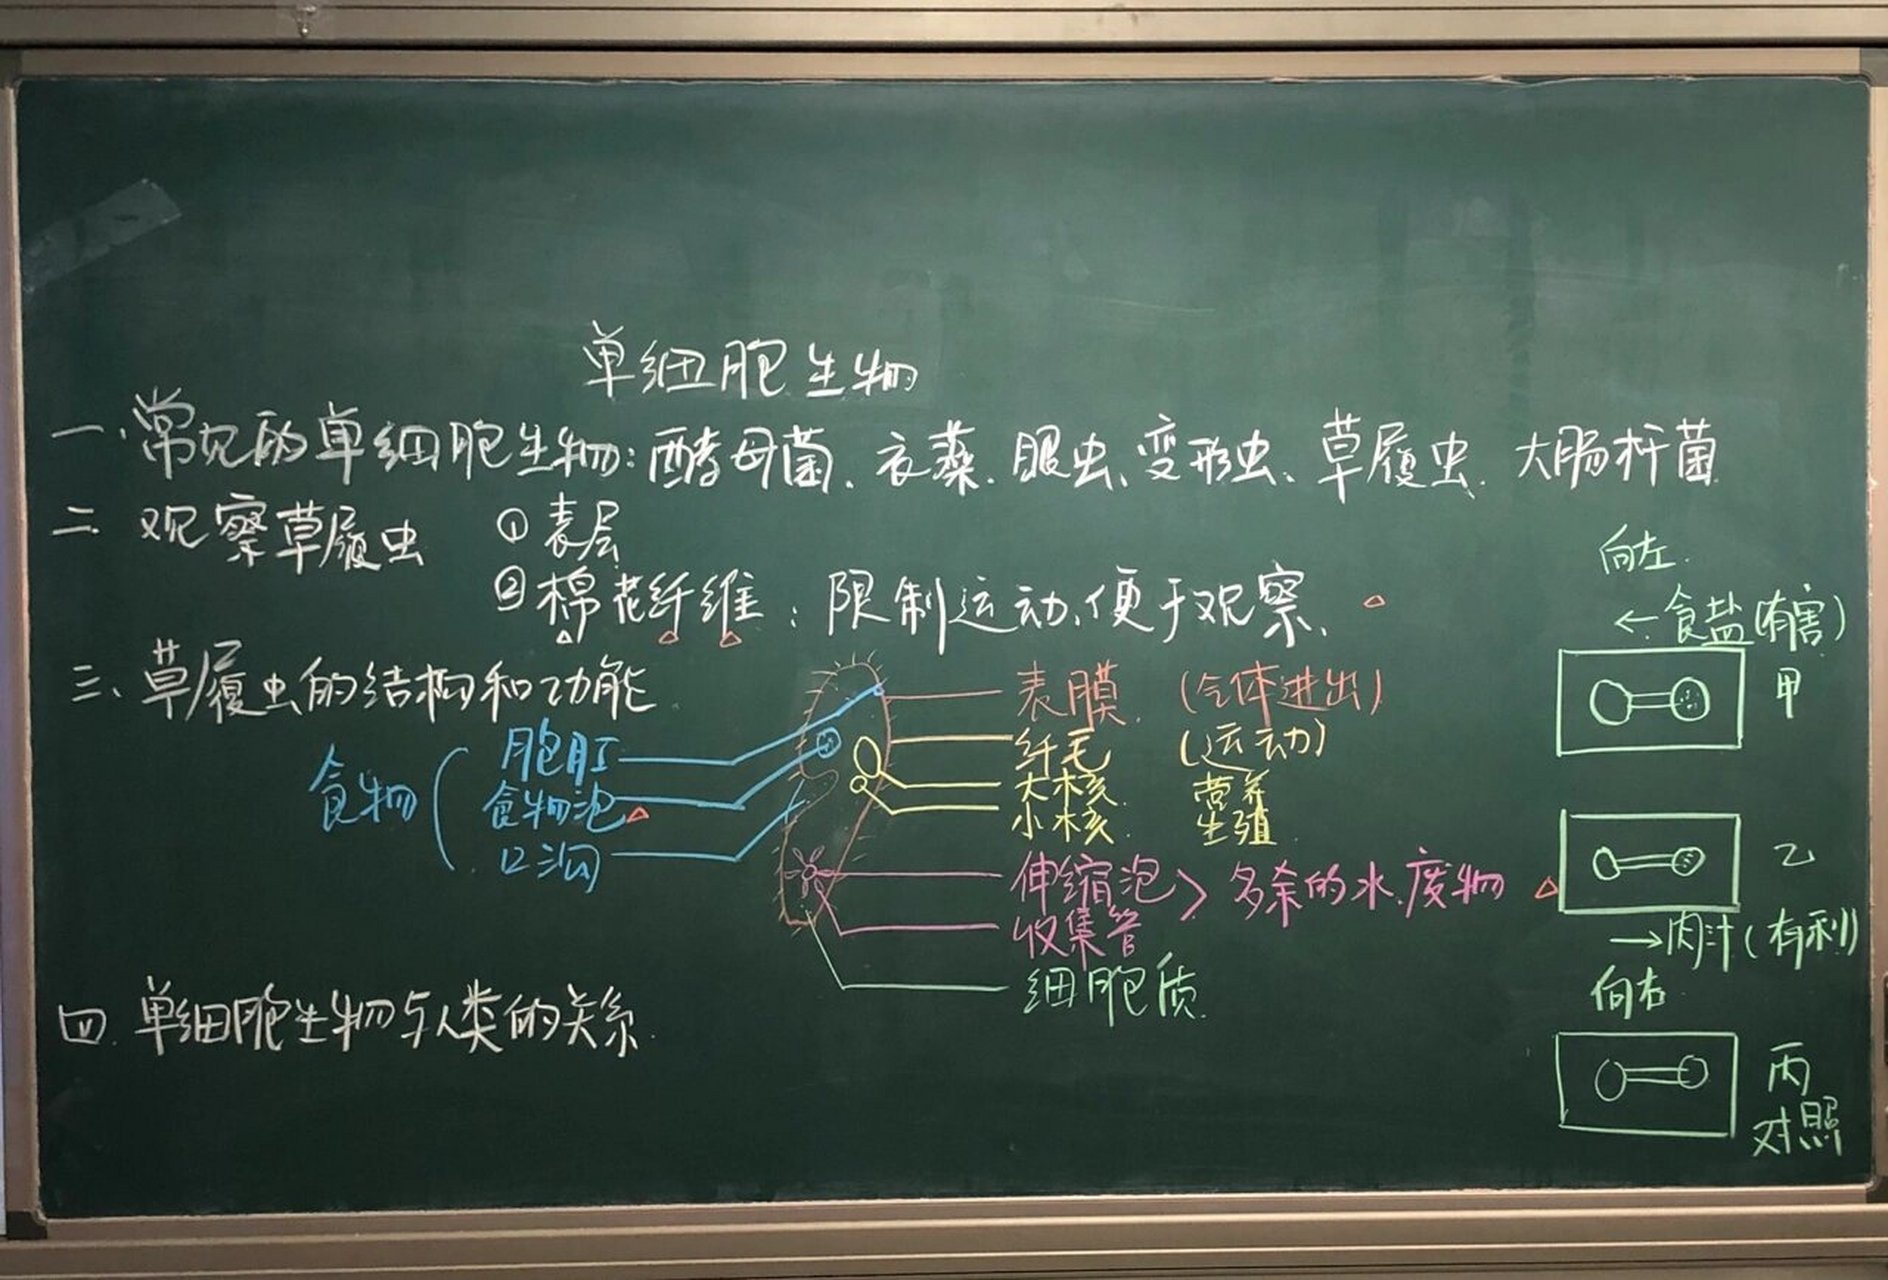 单细胞生物
一、常见的单细胞生物：酵母菌、衣藻、眼虫、变形虫、草履虫、大肠杆菌
二、观察草履虫 ①表层
②棉花纤维：限制运动、便于观察、
三、草履虫的结构和功能
食物
胞肛
食物泡
口沟
表膜 (气体进出)
纤毛 (运动)
大核 营养
小核 生殖
伸缩泡
收集管
多余的水、废物
细胞质
四、单细胞生物与人类的关系
向左
←食盐(有害)
甲
乙
→肉汁(有利)
向右
丙
对照